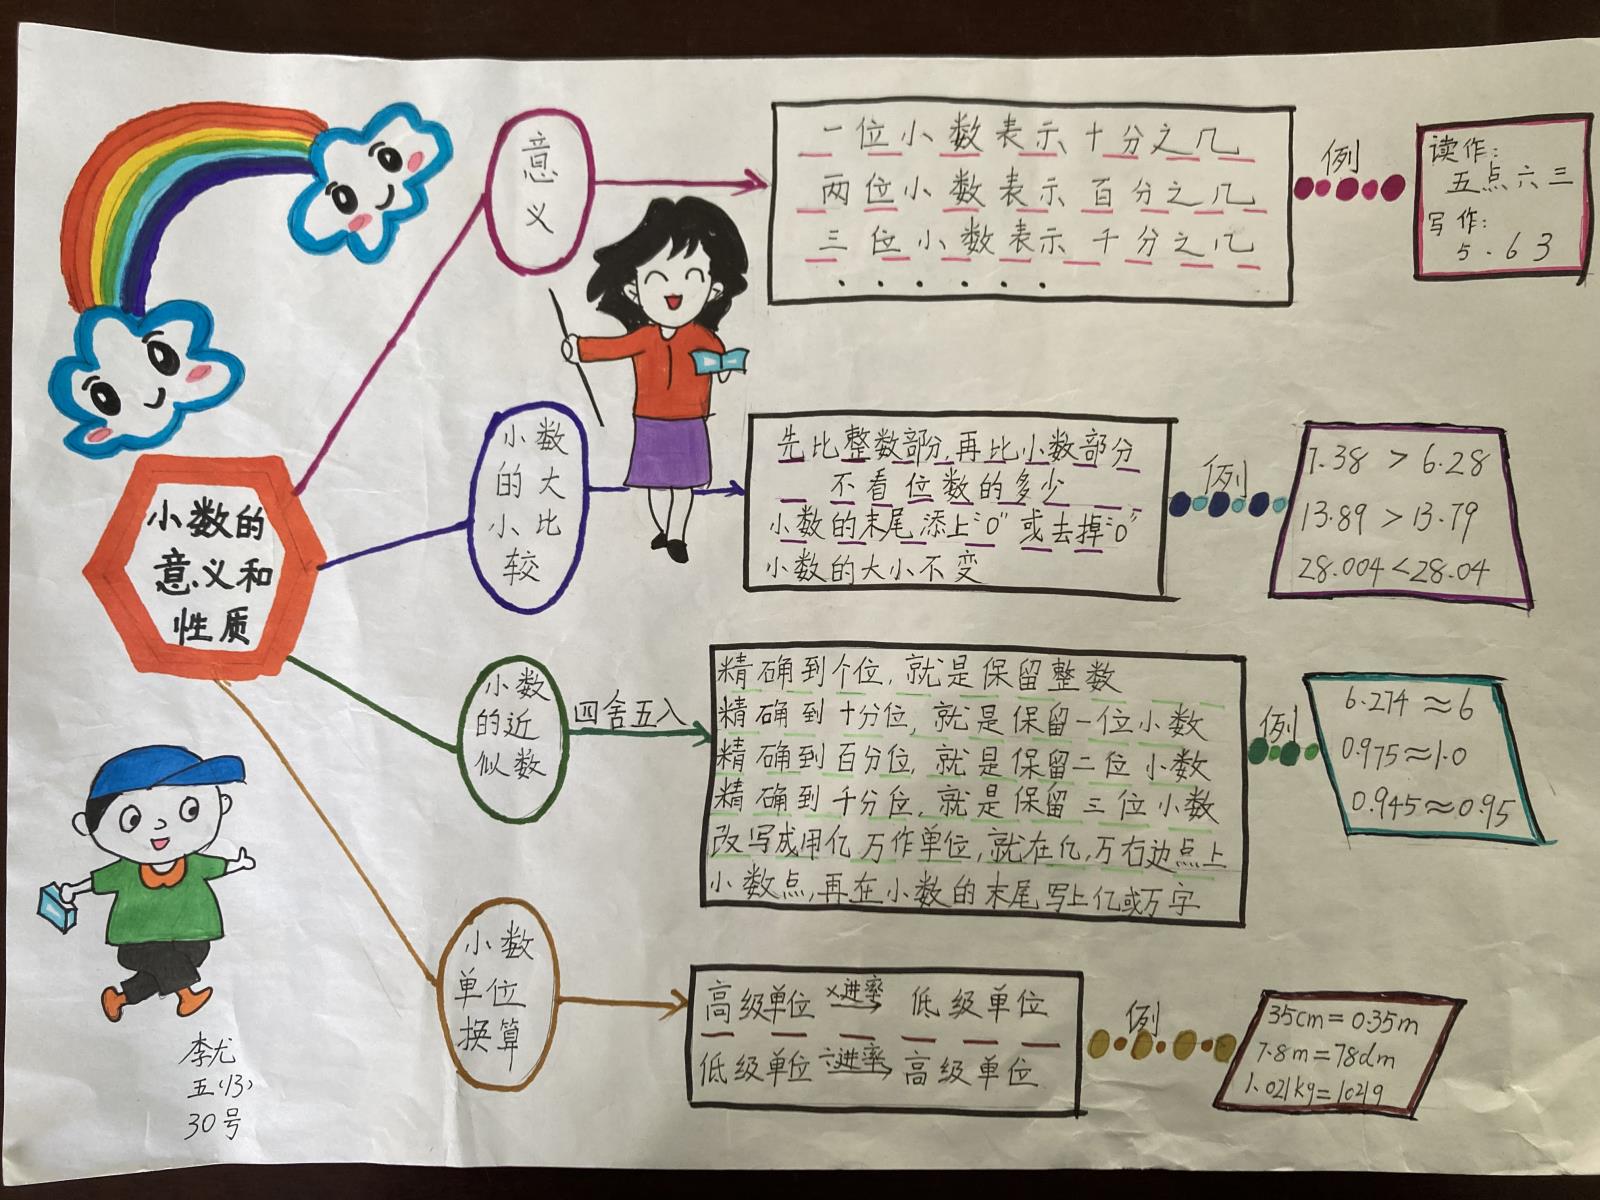 小数的
意义和
性质
意
义
一位小数表示十分之几
两位小数表示百分之几
三位小数表示千分之几
. . . . . . .
例
读作:
五点六三
写作:
5.63
小数
的大
小比
较
先比整数部分,再比小数部分
不看位数的多少
小数的末尾,添上“0”或去掉“0”
小数的大小不变
例
7.38 > 6.28
13.89 > 13.79
28.004 < 28.04
小数
的近
似数
四舍五入
精确到个位,就是保留整数
精确到十分位,就是保留一位小数
精确到百分位,就是保留二位小数
精确到千分位,就是保留三位小数
改写成用亿万作单位,就在亿,万右边点上
小数点,再在小数的末尾写上亿或万字
例
6.274≈6
0.975≈1.0
0.945≈0.95
小数
单位
换算
高级单位 ×进率 低级单位
低级单位 ÷进率 高级单位
例
35cm=0.35m
7.8m=78dm
1.021kg=1021g
李尤
五(13)
30号